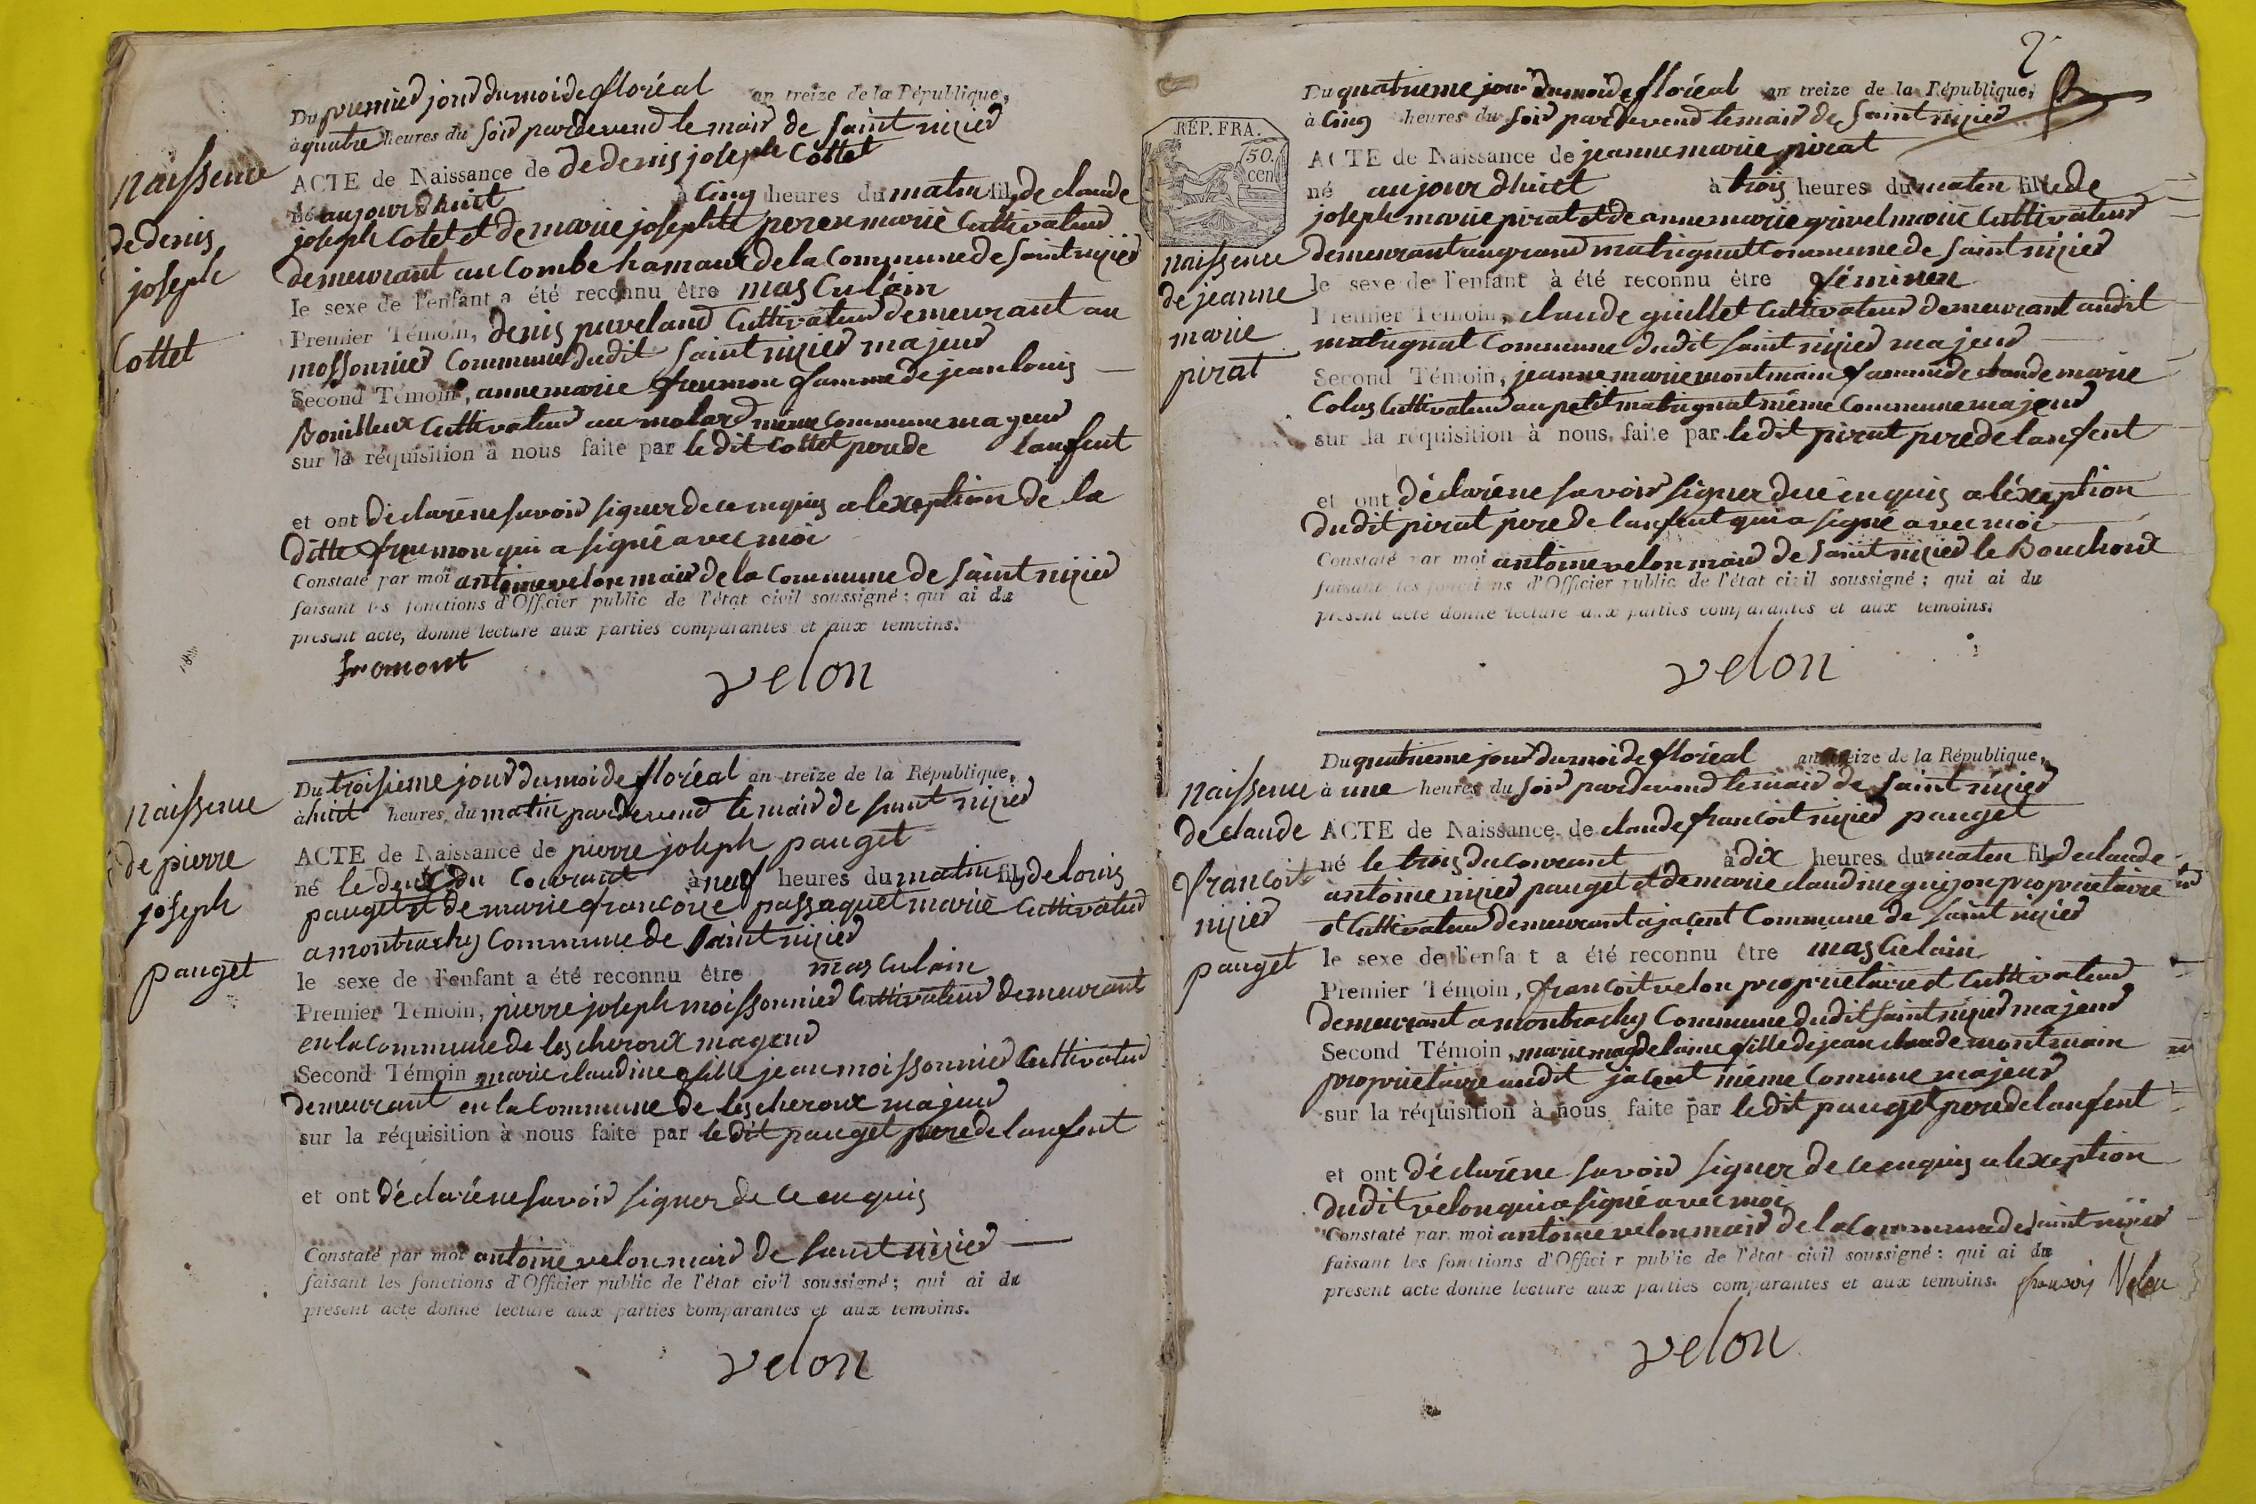 Du premier jour du moi de floréal an treize de la République,
à quatre heures du soir pardevend le mair de saint nizier
ACTE de Naissance de de denis joseph Cottet
né aujourdhuit à cinq heures du matin fils de claude
joseph Cotet et de marie josephte peren marié Cultivateur
demeurant au Combe hamaux de la Commune de saint nizier
le sexe de l'enfant a été reconnu être masCulain
Premier Témoin, denis puveland Cultivateur demeurant au
mossonnier Commune dudit saint nizier majeur
Second Témoin, anne marie freumon famme de jean louis
Bouilleux Cultivateur au molard même commune mageur
sur la réquisition à nous faite par le dit Cottet pere de lanfent
et ont déclaréne savoir signer de ce enquis a lexeption de la
ditte freumon qui a signé avec moi
Constaté par moi antoine velon mair de la Commune de saint nizier
faisant les fonctions d'Officier public de l'état civil soussigné; qui ai du
présent acte, donné lecture aux parties comparantes et aux témoins.
fromont
velon
naissence
de denis
joseph
Cottet
Du troisieme jour du moi de floréal an treize de la République,
à huit heures du matin pardevend le mair de saint nizier
ACTE de Naissance de pierre joseph pauget
né le deux du Courant à neuf heures du matin fils de louis
pauget et de marie francoise passaquet marié Cultivateur
a montrachy Commune de saint nizier
le sexe de l'enfant a été reconnu être masculain
Premier Témoin, pierre joseph moissonnier Cultivateur demeurant
en la Commune de lescheroux mageur
Second Témoin marie claudine fille jean moissonnier Cultivateur
demeurant en la Commune de lescheroux majeur
sur la réquisition à nous faite par le dit pauget pere de lanfent
et ont déclaréne savoir signer de ce enquis
Constaté par moi antoine velon mair de saint nizier
faisant les fonctions d'Officier public de l'état civil soussigné; qui ai du
présent acte donné lecture aux parties comparantes et aux témoins.
velon
naissence
de pierre
joseph
pauget
2
Du quatrieme jour du moi de floréal an treize de la République,
à Cinq heures du soir pardevend le mair de saint nizier
RÉP. FRA.
50.
cen
ACTE de Naissance de jeanne marie pirat
né aujourdhuit à trois heures du maten fille de
joseph marie pirat et de anne marie grivel marié Cultivateur
demeurant au grand matrignat Commune de saint nizier
le sexe de l'enfant à été reconnu être féminen
Premier Témoin, claude guillet Cultivateur demeurant audit
matrignat Commune dudit saint nizier majeur
Second Témoin, jeanne marie montmain famme de claude marie
Colas Cultivateur au petit matrignat même Commune majeur
sur la réquisition à nous, faite par le dit pirat pere de lanfent
et ont déclaréne savoir signer de ce enquis a léxeption
dudit pirat pere de lanfent qui a signé avec moi
Constaté par moi antoine velon mair de saint nizier le Bouchoux
faisant les fonctions d'Officier public de l'état civil soussigné; qui ai du
présent acte donné lecture aux parties comparantes et aux témoins.
velon
naissence
de jeanne
marie
pirat
Du quatrieme jour du moi de floréal an treize de la République,
à une heures du soir pardevend le mair de saint nizier
ACTE de Naissance de claude francoit nizier pauget
né le trois du courant à dix heures du maten fils de claude
antoine nizier pauget et de marie claudine guijon proprietaire
et Cultivateur demeurant a jacent Commune de saint nizier
le sexe de l'enfant a été reconnu être masCulain
Premier Témoin, francoit velon proprietaire et Cultivateur
demeurant a montrachy Commune dudit saint nizier majeur
Second Témoin, marie magdelaine fille de jean claude montmain
proprietaire audit jacent même Comune majeur
sur la réquisition à nous faite par le dit pauget pere de lanfent
et ont déclaréne savoir signer de ce enquis a lexeption
dudit velon qui a signé avec moi
Constaté par moi antoine velon mair de la Commune de saint nizier
faisant les fonctions d'Officier public de l'état civil soussigné: qui ai du
présent acte donné lecture aux parties comparantes et aux témoins.
francois Velon
velon
naissence
de claude
francoit
nizier
pauget